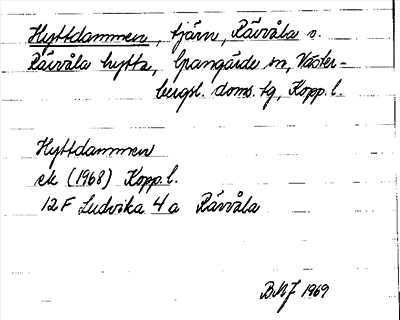 Hyttdammen, tjärn, Rävvåla o.
Rävvåla hytta, Grangärde sn, Väster-
bergsl. doms. tg, Kopp. l.
Hyttdammen
ek (1968) Kopp. l.
12 F Ludvika 4 a Rävvåla
BMJ 1969